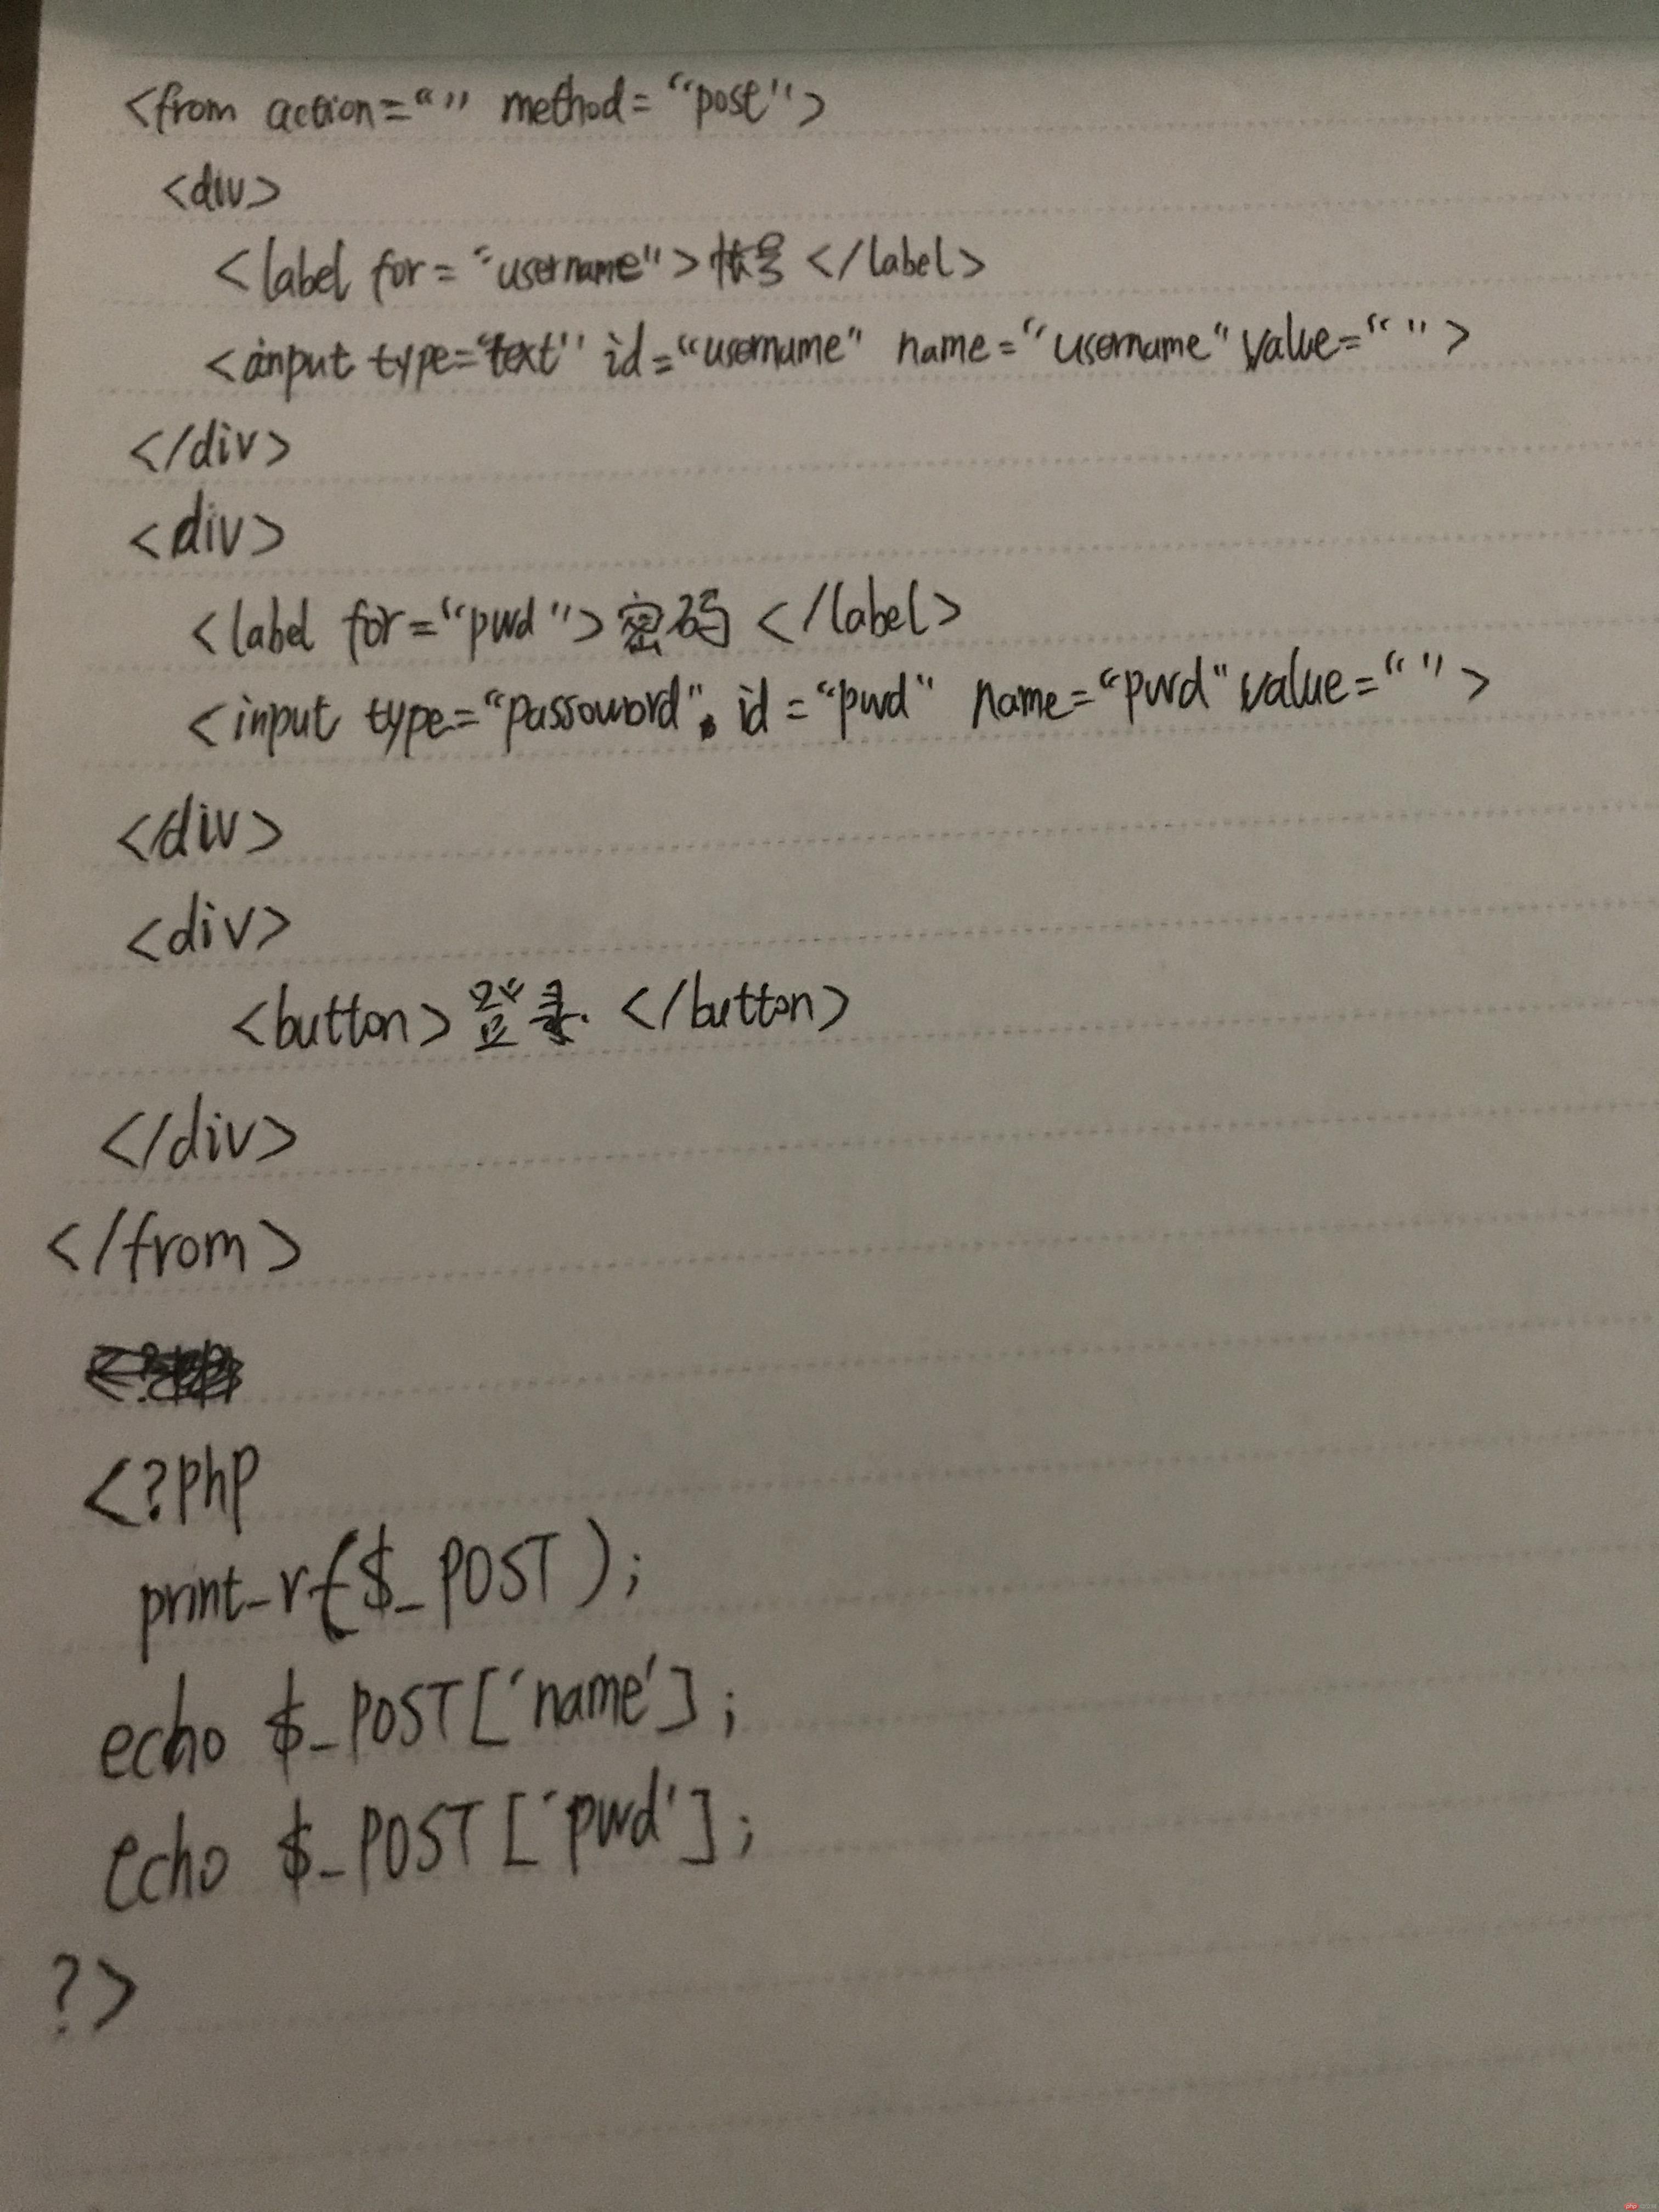 <from action="" method="post">
<div>
<label for="username">帐号</label>
<input type="text" id="username" name="username" value="">
</div>
<div>
<label for="pwd">密码</label>
<input type="passoword" id="pwd" name="pwd" value="">
</div>
<div>
<button>登录</button>
</div>
</from>
<?php
print_r($_POST);
echo $_POST['name'];
echo $_POST['pwd'];
?>
php